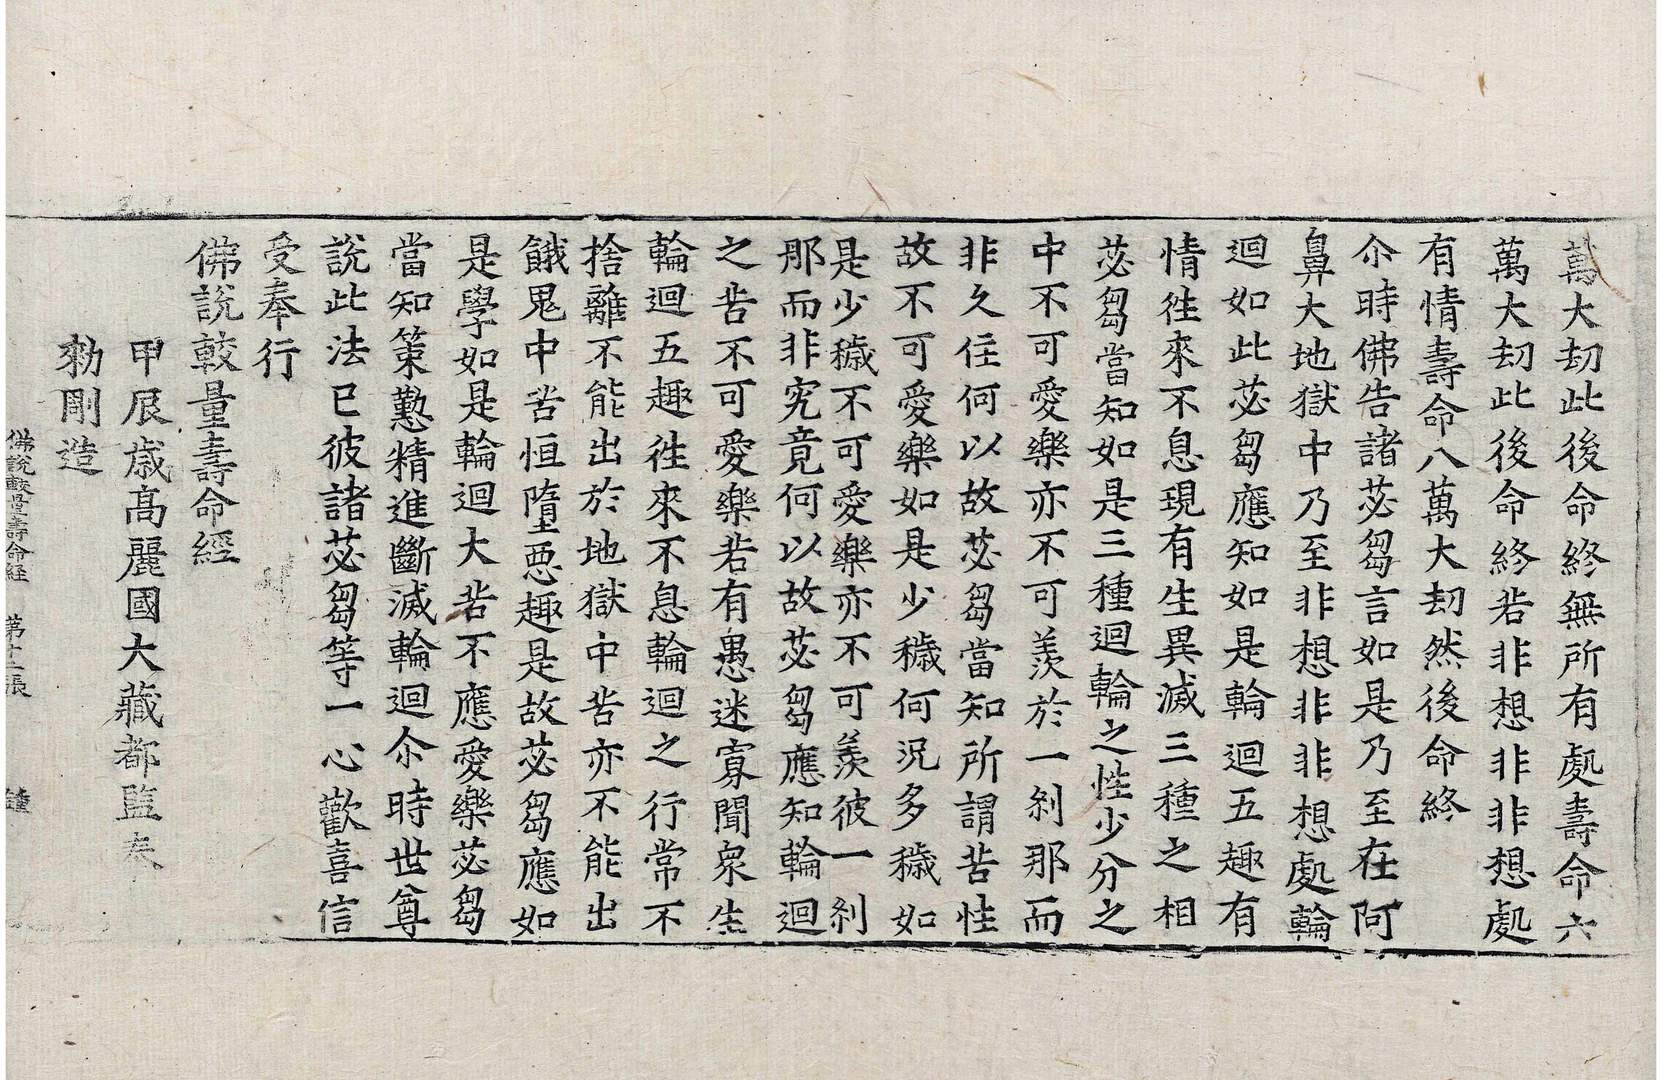 萬大劫此後命終無所有處壽命六
萬大劫此後命終若非想非非想處
有情壽命八萬大劫然後命終
尒時佛告諸苾芻言如是乃至在阿
鼻大地獄中乃至非想非非想處輪
迴如此苾芻應知如是輪迴五趣有
情徃來不息現有生異滅三種之相
苾芻當知如是三種迴輪之性少分之
中不可愛樂亦不可羨於一剎那而
非久住何以故苾芻當知所謂苦性
故不可愛樂如是少穢何況多穢如
是少穢不可愛樂亦不可羨彼一剎
那而非究竟何以故苾芻應知輪迴
之苦不可愛樂若有愚迷寡聞衆生
輪迴五趣徃來不息輪迴之行常不
捨離不能出於地獄中苦亦不能出
餓鬼中苦恒墮惡趣是故苾芻應如
是學如是輪迴大苦不應愛樂苾芻
當知策懃精進斷滅輪迴尒時世尊
說此法已彼諸苾芻等一心歡喜信
受奉行
佛說較量壽命經
甲辰歳高麗國大藏都監奉
勑彫造
佛說較量壽命経 第十二張 鍾